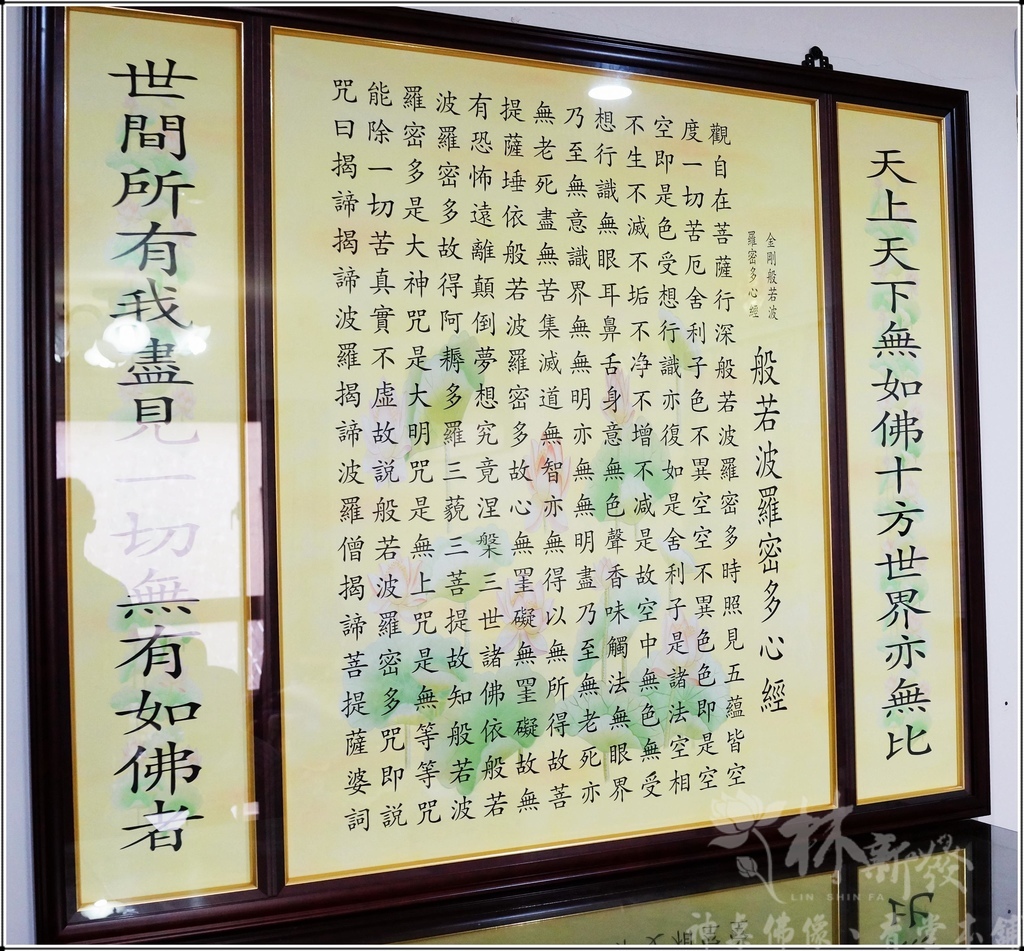 天上天下無如佛十方世界亦無比
金剛般若波
羅密多心經
般若波羅密多心經
觀自在菩薩行深般若波羅密多時照見五蘊皆空
度一切苦厄舍利子色不異空空不異色色即是空
空即是色受想行識亦復如是舍利子是諸法空相
不生不滅不垢不净不增不减是故空中無色無受
想行識無眼耳鼻舌身意無色聲香味觸法無眼界
乃至無意識界無無明亦無無明盡乃至無老死亦
無老死盡無苦集滅道無智亦無得以無所得故菩
提薩埵依般若波羅密多故心無罣礙無罣礙故無
有恐怖遠離顛倒夢想究竟涅槃三世諸佛依般若
波羅密多故得阿耨多羅三藐三菩提故知般若波
羅密多是大神咒是大明咒是無上咒是無等等咒
能除一切苦真實不虛故説般若波羅密多咒即説
咒曰揭諦揭諦波羅揭諦波羅僧揭諦菩提薩婆詞
世間所有我盡見一切無有如佛者
林新發
LIN SHIN FA
神桌佛像